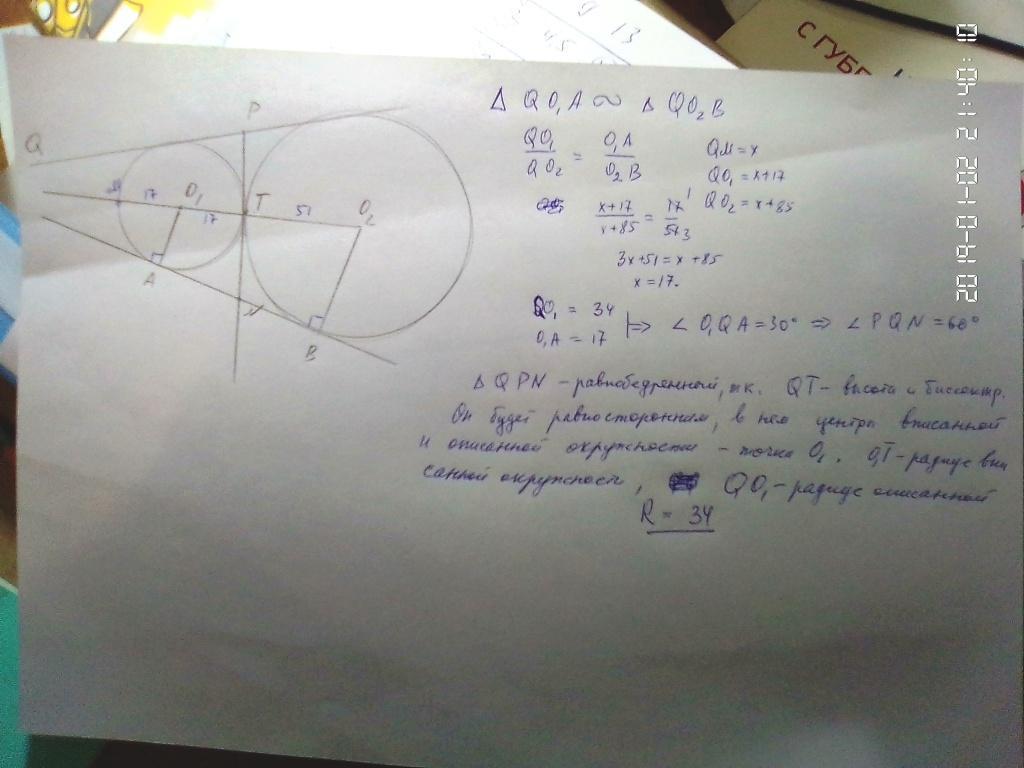 9 13
45
С ГУБЕ
2014-01-12 11:40:0
Q
P
M
17
O₁
17
T
51
O₂
A
N
B
Δ QO₁A ∾ Δ QO₂B
QO₁/QO₂ = O₁A/O₂B
QM = x
QO₁ = x+17
QO₂ = x+85
x+17/x+85 = 17 1/51 3
3x+51 = x+85
x = 17.
QO₁ = 34
O₁A = 17
|⇒ ∠ O₁QA = 30° ⇒ ∠ PQN = 60°
Δ QPN – равнобедренный, т.к. QT – высота и биссектр.
Он будет равносторонним, в нем центры вписанной
и описанной окружности – точка O₁. O₁T – радиус впи
санной окружности, QO₁ – радиус описанной
R = 34